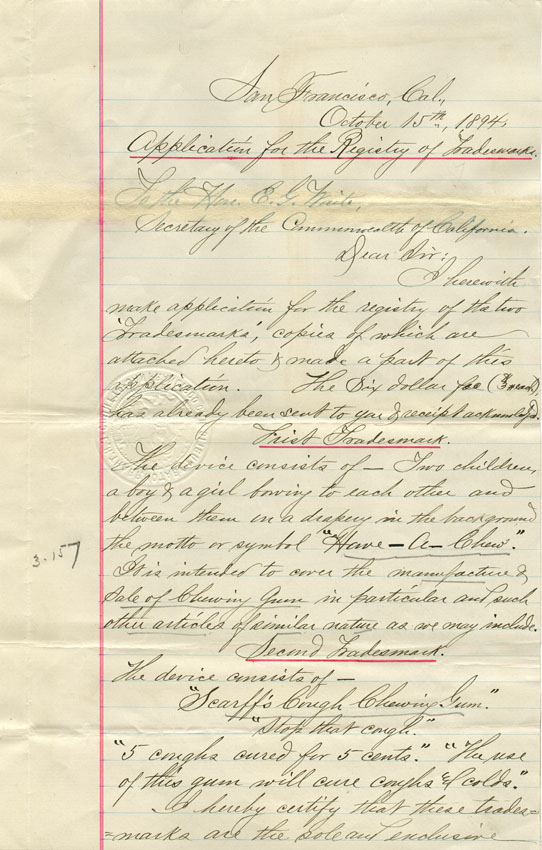 San Francisco, Cal.,
October 15th, 1894.
Application for the Registry of Tradesmarks.
To the Hon. E. G. Waite,
Secretary of the Commonwealth of California.
Dear Sir:
I herewith
make application for the registry of the two
'Tradesmarks', copies of which are
attached hereto & made a part of this
application. The Six dollar fee ($3 each)
has already been sent to you & receipt acknowl'g'd.
First Tradesmark.
The device consists of — Two children,
a boy & a girl bowing to each other and
between them on a drapery in the background
the motto or symbol "Have-A-Chew."
It is intended to cover the manufacture &
Sale of Chewing Gum in particular and such
other articles of similar nature as we may include.
3.157
Second Tradesmark.
The device consists of —
"Scarff's Cough Chewing Gum."
"Stop that cough."
"5 coughs cured for 5 cents." "The use
of this gum will cure coughs & colds."
I hereby certify that these trades=
=marks are the sole and exclusive